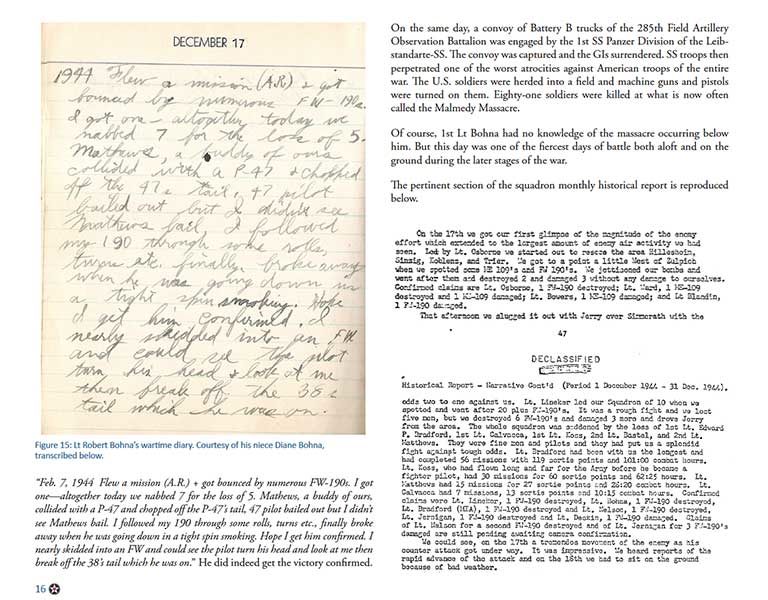 DECEMBER 17
1944 Flew a mission (A.R.) + got
bounced by numerous FW-190s.
I got one - altogether today we
nabbed 7 for the loss of 5.
Mathews, a buddy of ours
collided with a P-47 + chopped
off the 47s tail, 47 pilot
bailed out but I didn't see
Mathews bail. I followed
my 190 through some rolls,
turns etc. finally broke away
when he was going down in
a tight spin smoking. Hope
I get him confirmed. I
nearly skidded into an FW
and could see the pilot
turn his head + look at me
then break off the 38s
tail which he was on.
Figure 15: Lt Robert Bohna's wartime diary. Courtesy of his niece Diane Bohna,
transcribed below.
"Feb. 7, 1944 Flew a mission (A.R.) + got bounced by numerous FW-190s. I got
one—altogether today we nabbed 7 for the loss of 5. Mathews, a buddy of ours,
collided with a P-47 and chopped off the P-47's tail, 47 pilot bailed out but I didn't
see Mathews bail. I followed my 190 through some rolls, turns etc., finally broke
away when he was going down in a tight spin smoking. Hope I get him confirmed. I
nearly skidded into an FW and could see the pilot turn his head and look at me then
break off the 38's tail which he was on." He did indeed get the victory confirmed.
16
On the same day, a convoy of Battery B trucks of the 285th Field Artillery
Observation Battalion was engaged by the 1st SS Panzer Division of the Leib-
standarte-SS. The convoy was captured and the GIs surrendered. SS troops then
perpetrated one of the worst atrocities against American troops of the entire
war. The U.S. soldiers were herded into a field and machine guns and pistols
were turned on them. Eighty-one soldiers were killed at what is now often
called the Malmedy Massacre.
Of course, 1st Lt Bohna had no knowledge of the massacre occurring below
him. But this day was one of the fiercest days of battle both aloft and on the
ground during the later stages of the war.
The pertinent section of the squadron monthly historical report is reproduced
below.
On the 17th we got our first glimpse of the magnitude of the enemy
effort which extended to the largest amount of enemy air activity we had
seen. Led by Lt. Osborne we started out to recce the area Hillesheim,
Sinzig, Koblenz, and Trier. We got to a point a little West of Zulpich
when we spotted some ME 109's and FW 190's. We jettisoned our bombs and
went after them and destroyed 2 and damaged 3 without any damage to ourselves.
Confirmed claims are Lt. Osborne, 1 FW-190 destroyed; Lt. Ward, 1 ME-109
destroyed and 1 ME-109 damaged; Lt. Bowers, 1 ME-109 damaged; and Lt Blandin,
1 FW-190 damaged.
That afternoon we slugged it out with Jerry over Simmerath with the
47
DECLASSIFIED
Historical Report - Narrative Cont'd (Period 1 December 1944 - 31 Dec. 1944).
odds two to one against us. Lt. Lineker led our Squadron of 10 when we
spotted and went after 20 plus FW-190's. It was a rough fight and we lost
five men, but we destroyed 6 FW-190's and damaged 3 more and drove Jerry
from the area. The whole squadron was saddened by the loss of 1st Lt. Edward
P. Bradford, 1st Lt. Calvocca, 1st Lt. Koss, 2nd Lt. Dastal, and 2nd Lt.
Matthews. They were fine men and pilots and they had put us a splendid
fight against tough odds. Lt. Bradford had been with us the longest and
had completed 56 missions with 119 sortie points and 101:00 combat hours.
Lt. Koss, who had flown long and far for the Army before he became a
fighter pilot, had 30 missions for 60 sortie points and 62:25 hours. Lt.
Matthews had 15 missions for 27 sortie points and 28:20 combat hours. Lt.
Calvacca had 7 missions, 13 sortie points and 10:15 combat hours. Confirmed
claims were Lt. Lineker, 1 FW-190 destroyed, Lt. Bohna, 1 FW-190 destroyed,
Lt. Bradford (MIA), 1 FW-190 destroyed and Lt. Nelson, 1 FW-190 destroyed,
Lt. Jernigan, 1 FW-190 destroyed and Lt. Deakin, 1 FW-190 damaged. Claims
of Lt. Nelson for a second FW-190 destroyed and of Lt. Jernigan for 3 FW-190's
damaged are still pending awaiting camera confirmation.
We could see, on the 17th a tremendous movement of the enemy as his
counter attack got under way. It was impressive. We heard reports of the
rapid advance of the attack and on the 18th we had to sit on the ground
because of bad weather.